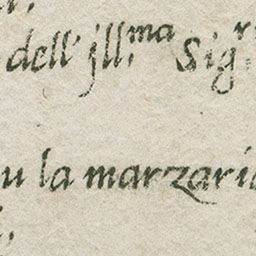 dell' Ill.ma Sig.r
u la marzari